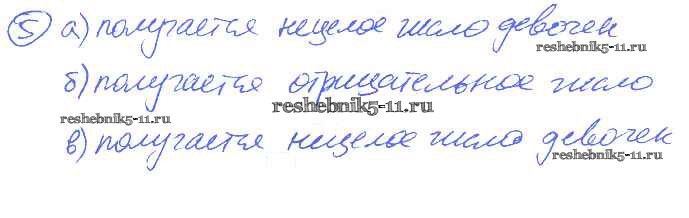 5 а) получается нецелое число девочек
reshebnik5-11.ru
б) получается отрицательное число
reshebnik5-11.ru
reshebnik5-11.ru
в) получается нецелое число девочек
reshebnik5-11.ru